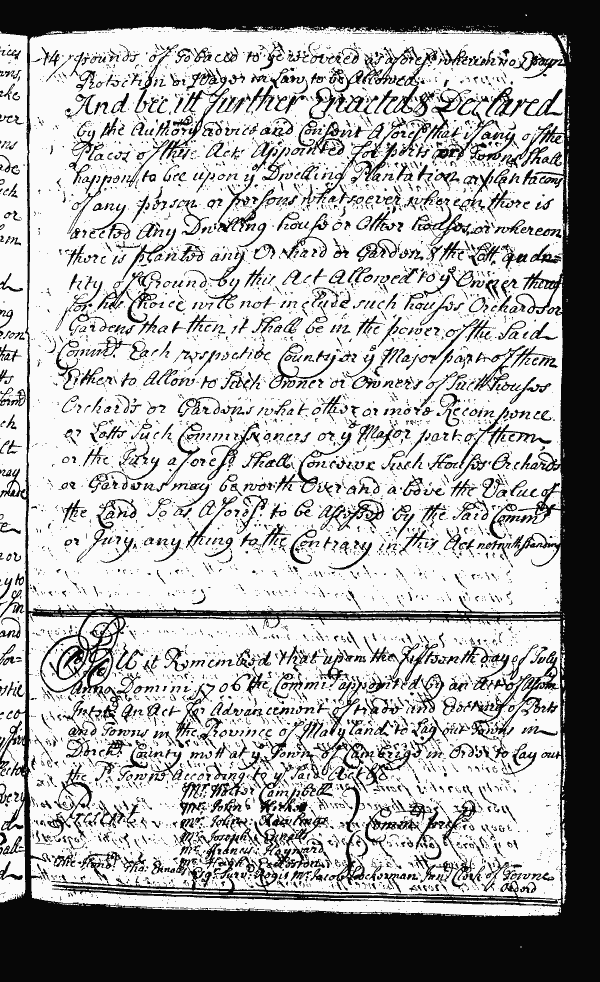 14 grounds of Tobacco to ye recovered as afores wherein no Essoyn
Protection or Wager in Law to be allowed.
And bee itt further Enacted & Declared
by the Authory advice and Consent Aforesd that if any of the
Places of these Acts Appointed for ports and Towns shall
happen to bee upon ye Dwelling Plantation or plantacons
of any person or persons whatsoever whereon there is
erected Any Dwelling house or Other houses or whereon
there is planted any Orchard or Garden, & the Lott, quan=
tity of Ground by this Act Allowed to ye Owner thereof
for his Choice will not include such houses Orchards or
Gardens that then it Shall be in the power of the Said
Commrs Each respective County or ye Major part of them
Either to Allow to Such Owner or Owners of Such houses
Orchards or Gardens what other or more Recompence
or Lotts Such Commissioners or ye Major part of them
or the Jury aforesd Shall Conceive Such Houses Orchards
or Gardens may be worth Over and above the Value of
the Land So as Aforesd to be Assessed by the Said Commrs
or Jury, any thing to the Contrary in this Act notwithstanding
Be it Remembred that upon the fifteenth day of July
Anno Domini 1706 the Commrs appointed by an Act of Assem
Intitd An Act for Advancement of trade and Erecting of Ports
and Towns in the Province of Maryland to Lay out Towns in
Dorchr County mett at ye Town of Cambridge in Order to Lay out
the sd Towns According to ye Said Act &c
Mr Walter Campbell
Mr John Kirke
Present Mr John Rawlings Commrs presd
Mr Joseph Ennalls
Mr Francis Hayward
Mr Hugh Eccleston
The Honble Tho: Ennalls Esqr Survr Regis Mr Jacob Lockerman Junr Clerk of Towne
Record